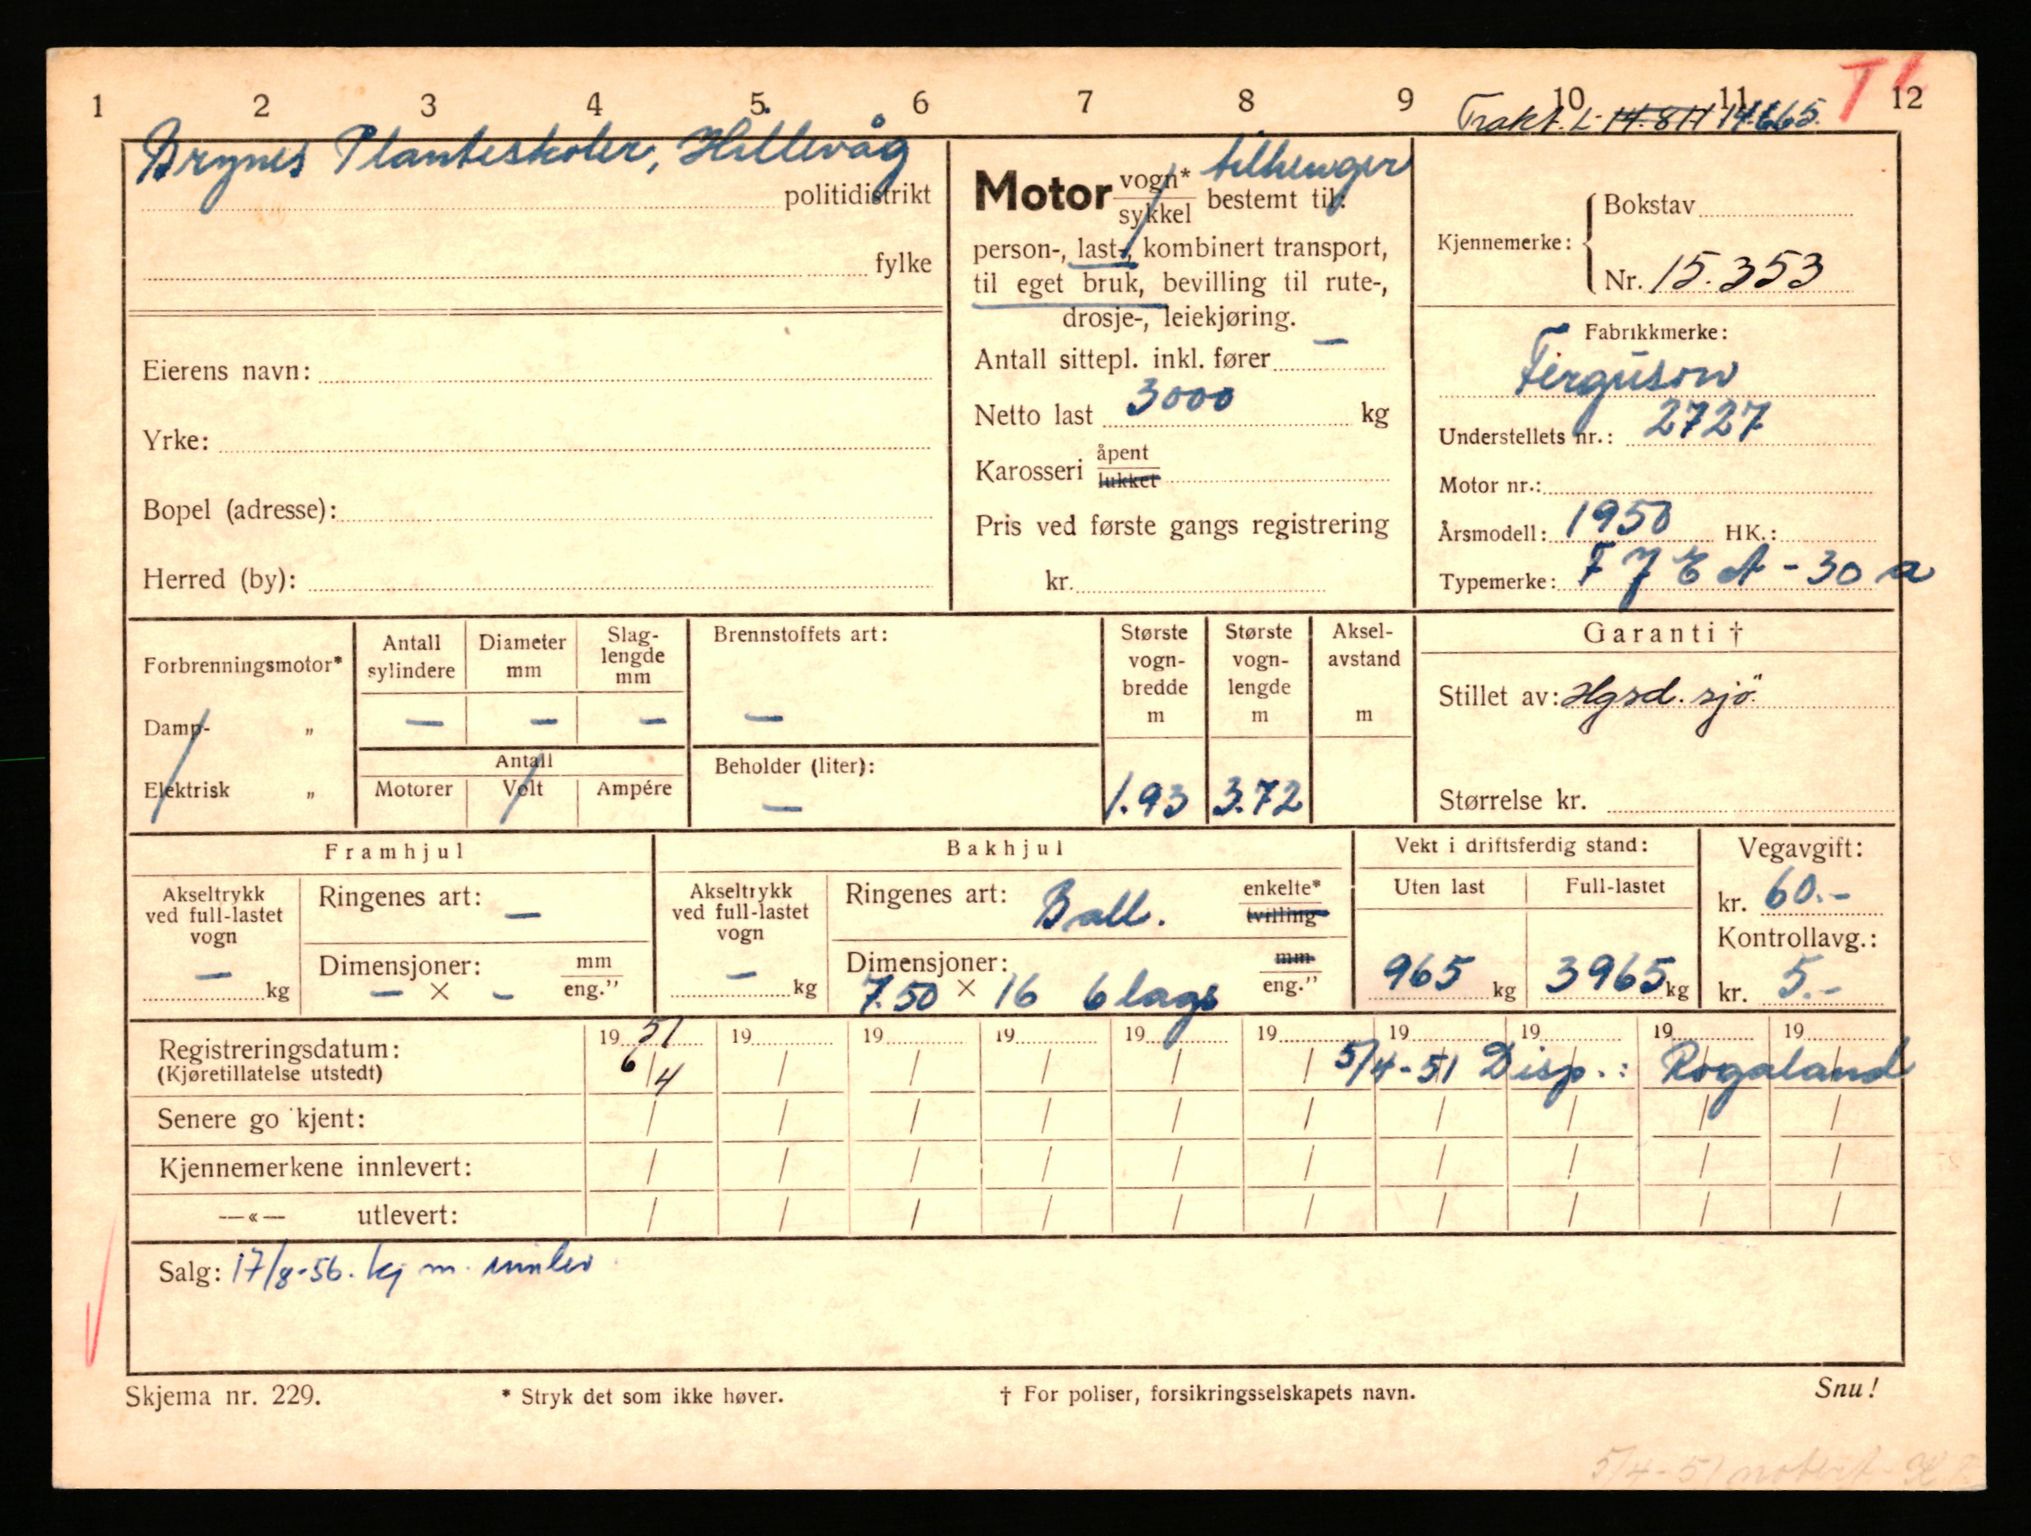 1 2 3 4 5 6 7 8 9 10 11 12
T
Trakt. L 14.811 14.665.
Brynes Planteskoler, Hillevåg
politidistrikt
fylke
Eierens navn:
Yrke:
Bopel (adresse):
Herred (by):
Motor vogn* tilhenger
sykkel bestemt til:
person-, last-, kombinert transport,
til eget bruk, bevilling til rute-,
drosje-, leiekjøring.
Antall sittepl. inkl. fører —
Netto last 3000 kg
Karosseri åpent
lukket
Pris ved første gangs registrering
kr.
Kjennemerke: Bokstav
Nr. 15.353
Fabrikkmerke:
Ferguson
Understellets nr.: 2727
Motor nr.:
Årsmodell: 1950 HK.:
Typemerke: F J E A - 30 a
Forbrenningsmotor*
Damp- „
Elektrisk „
Antall sylindere
—
Diameter mm
—
Slag-lengde mm
—
Antall
Motorer Volt Ampére
Brennstoffets art:
—
Beholder (liter):
—
Største vogn-bredde m
1.93
Største vogn-lengde m
3.72
Aksel-avstand m
Garanti †
Stillet av: Hgsd. sjö.
Størrelse kr.
Framhjul
Akseltrykk ved full-lastet vogn
— kg
Ringenes art: —
Dimensjoner: mm
— × — eng.”
Bakhjul
Akseltrykk ved full-lastet vogn
— kg
Ringenes art: Ball. enkelte*
tvilling
Dimensjoner: mm
7.50 × 16 6 lags eng.”
Vekt i driftsferdig stand:
Uten last Full-lastet
965 kg 3965 kg
Vegavgift:
kr. 60.-
Kontrollavg.:
kr. 5.-
19 51 19 19 19 19 19 19 19 19 19
Registreringsdatum: 6/4 / / / / / 5/4-51 Disp.: Rogaland
(Kjøretillatelse utstedt)
Senere go kjent: / / / / / / / / / /
Kjennemerkene innlevert: / / / / / / / / / /
—«— utlevert: / / / / / / / / / /
Salg: 17/8-56. kj m. innlev
Skjema nr. 229. * Stryk det som ikke høver. † For poliser, forsikringsselskapets navn. Snu!
5/4-51